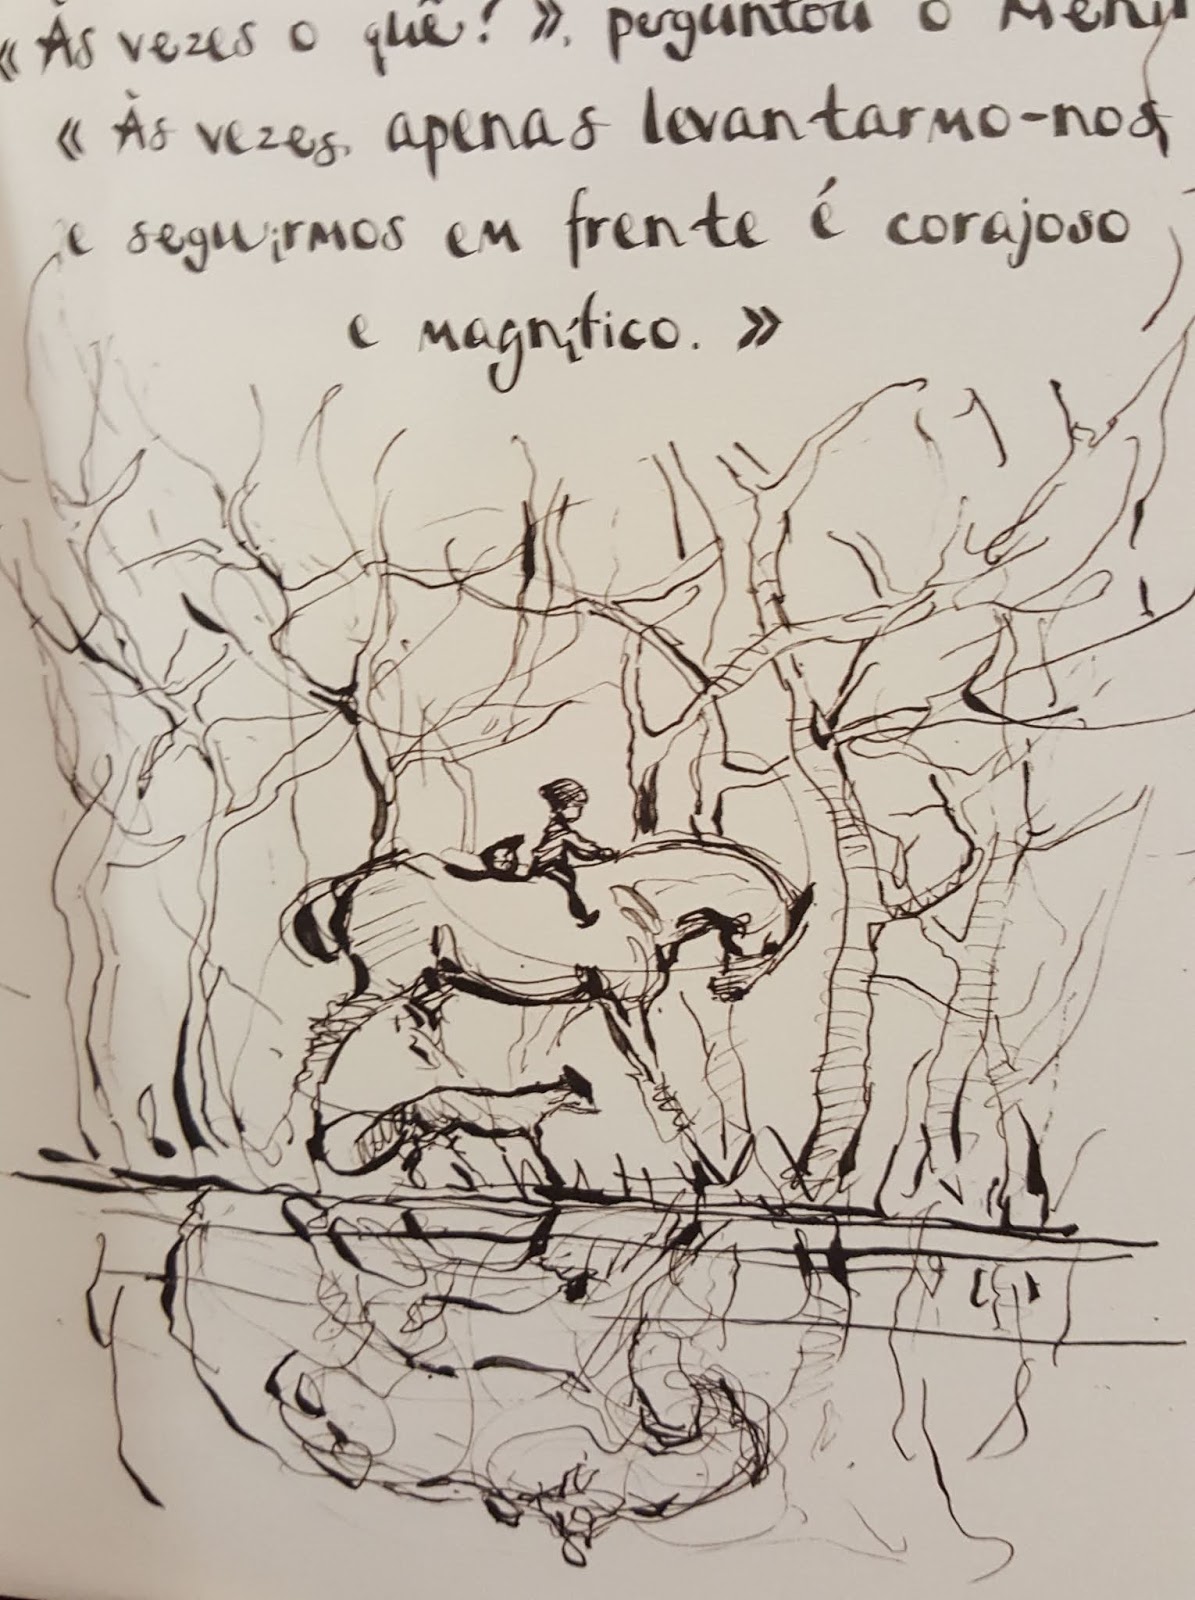 «Às vezes o quê?», perguntou o
«Às vezes, apenas levantarmo-nos
e seguirmos em frente é corajoso
e magnífico.»